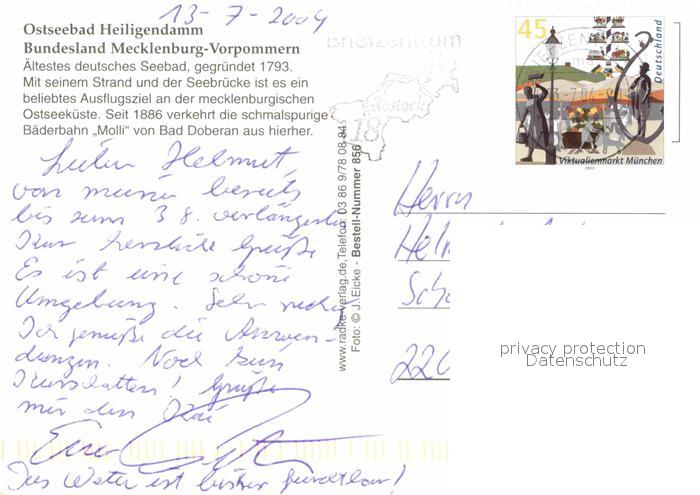 13-7-2004
Ostseebad Heiligendamm
Bundesland Mecklenburg-Vorpommern
Ältestes deutsches Seebad, gegründet 1793.
Mit seinem Strand und der Seebrücke ist es ein
beliebtes Ausflugsziel an der mecklenburgischen
Ostseeküste. Seit 1886 verkehrt die schmalspurige
Bäderbahn „Molli" von Bad Doberan aus hierher.
Lieber Helmut,
von meiner bereits
bis zum 3 8. verlängerten
Kur herzliche Grüße
Es ist eine schöne
Umgebung. Sehr
Ich genieße die Anwen-
dungen. Noch kein
Kurschatten! Grüße
mir den
Euer
Das Wetter ist bisher furchtbar!
www.radke-verlag.de, Telefon: 03 86 9/78 08 84
Foto: © J. Eicke - Bestell-Nummer 856
Briefzentrum
Rostock
18
45
Deutschland
Viktualienmarkt München
2003
Herrn
Hel
Sch
220
privacy protection
Datenschutz